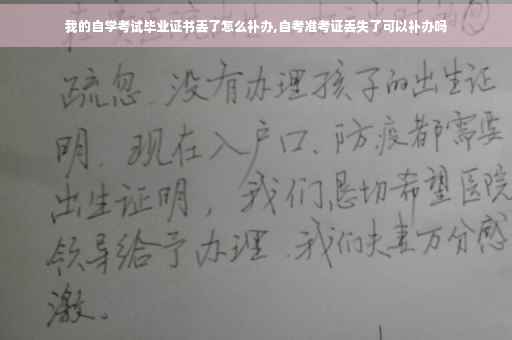 我的自学考试毕业证书丢了怎么补办,自考准考证丢失了可以补办吗
疏忽、没有办理孩子的出生证
明、现在入户口、防疫都需要
出生证明，我们恳切希望医院
领导给予办理、我们夫妻万分感
激。